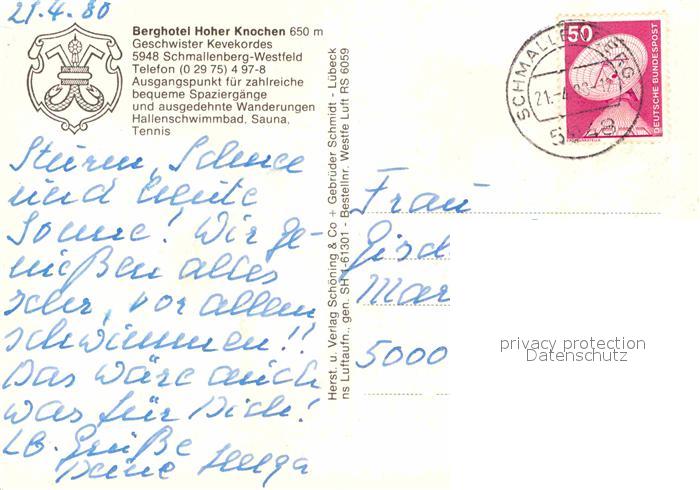 21.4.80
Berghotel Hoher Knochen 650 m
Geschwister Kevekordes
5948 Schmallenberg-Westfeld
Telefon (0 29 75) 4 97-8
Ausgangspunkt für zahlreiche
bequeme Spaziergänge
und ausgedehnte Wanderungen
Hallenschwimmbad, Sauna,
Tennis
Sturm, Schnee
und heute
Sonne! Wir ge-
nießen alles
sehr, vor allem
schwimmen!!
Das wäre auch
was für Dich!
Lb. Grüße
Deine Helga
Herst. u. Verlag Schöning & Co + Gebrüder Schmidt - Lübeck
ns Luftaufn., gen. SH 1-61301 - Bestellnr. Westfe Luft RS 6059
50
DEUTSCHE BUNDESPOST
SCHMALLENBERG
21.-4.80-17
5948
Frau
Gisel
Mar
5000
privacy protection
Datenschutz